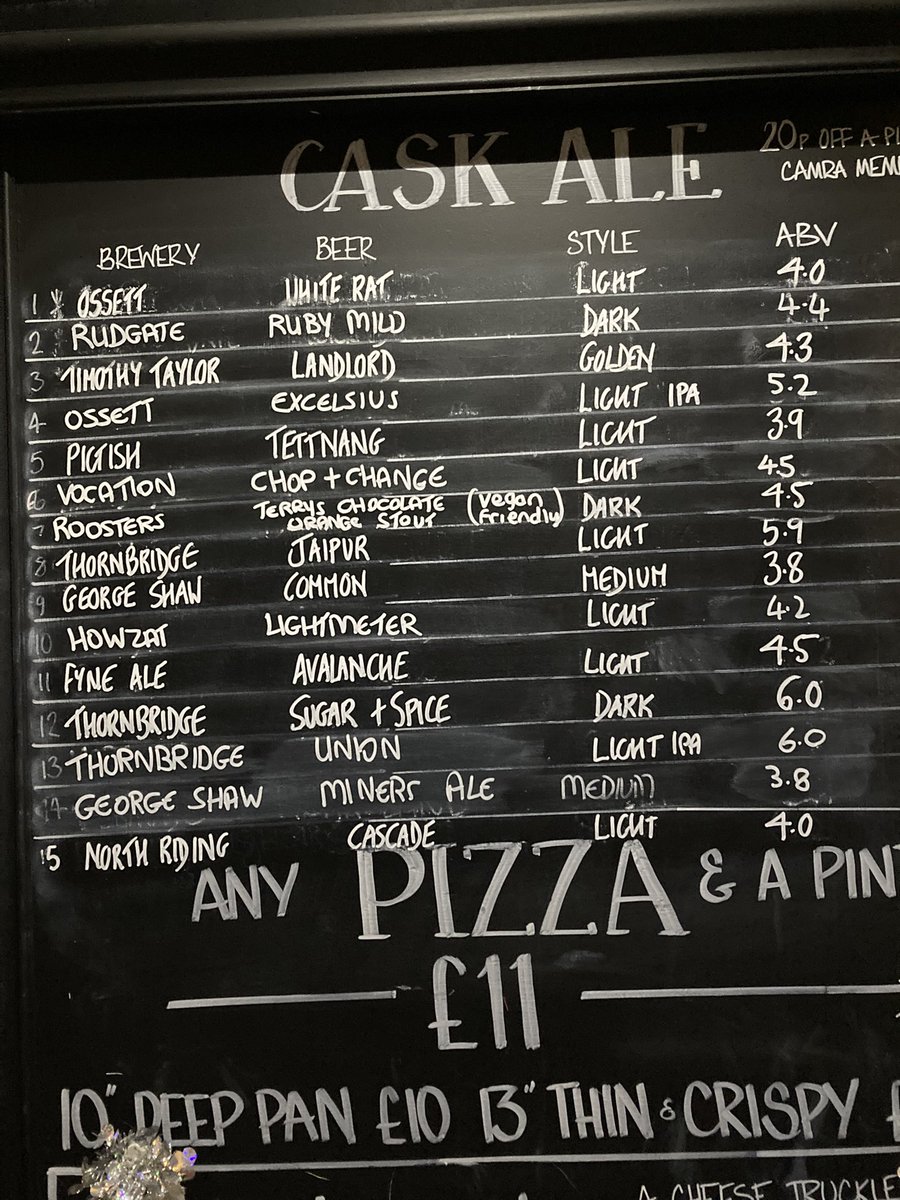 CASK ALE
20P OFF A PI
CAMRA MEM
BREWERY BEER STYLE ABV
1 OSSETT WHITE RAT LIGHT 4.0
2 RUDGATE RUBY MILD DARK 4.4
3 TIMOTHY TAYLOR LANDLORD GOLDEN 4.3
4 OSSETT EXCELSIUS LIGHT IPA 5.2
5 PIGISH TETTNANG LIGHT 3.9
6 VOCATION CHOP + CHANGE LIGHT 4.5
7 ROOSTERS TERRYS CHOCOLATE ORANGE STOUT (vegan friendly) DARK 4.5
8 THORNBRIDGE JAIPUR LIGHT 5.9
9 GEORGE SHAW COMMON MEDIUM 3.8
10 HOWZAT LIGHTMETER LIGHT 4.2
11 FYNE ALE AVALANCHE LIGHT 4.5
12 THORNBRIDGE SUGAR + SPICE DARK 6.0
13 THORNBRIDGE UNION LIGHT IPA 6.0
14 GEORGE SHAW MINERS ALE MEDIUM 3.8
15 NORTH RIDING CASCADE LIGHT 4.0
ANY PIZZA & A PINT
£11
10" DEEP PAN £10 13" THIN & CRISPY £
A CHEESE TRUCKLE